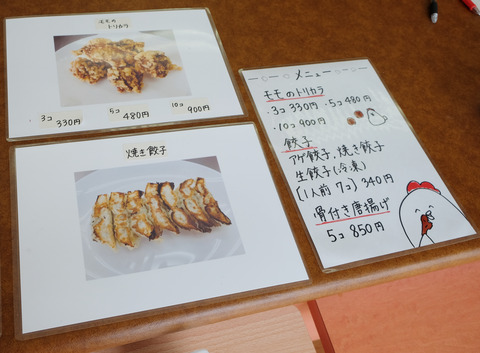 モモの
トリカラ
3コ 330円
5コ 480円
10コ 900円
焼き餃子
メニュー
モモのトリカラ
・3コ 330円 ・5コ 480円
・10コ 900円
餃子
アゲ餃子、焼き餃子
生餃子(冷凍)
(1人前7コ) 340円
骨付き唐揚げ
5コ 850円